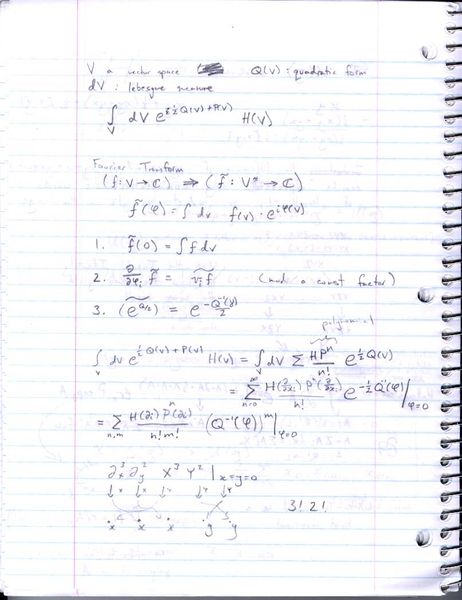 V a vector space Q(v) : quadratic form
dV : lebesgue measure
∫_V dV e^{½Q(v)+P(v)} H(v)
Fourier Transform
(f: V → ℂ) ⇒ (f̃ : V* → ℂ)
f̃(φ) = ∫ dv f(v) · e^{iφ(v)}
1. f̃(0) = ∫ f dv
2. ∂/∂φ_i f̃ = \widetilde{v_i f} (mod a const factor)
3. (\widetilde{e^{Q/2}}) = e^{-Q^{-1}(φ)/2}
polynomial
∫_V dv e^{½Q(v)+P(v)} H(v) = ∫_V dV Σ HP^n/n! e^{½Q(v)}
= Σ_{n=0}^∞ H(∂/∂x_i) P^n(∂/∂x_i)/n! e^{-½Q^{-1}(φ)} |_{φ=0}
= Σ_{n,m} H(∂_i) P(∂_i)^n / n! m! (Q^{-1}(φ))^m |_{φ=0}
∂_x^3 ∂_y^2 X^3 Y^2 |_{x=y=0}
↓x ↓x ↓x ↓y ↓y
3! 2!
x x x y y